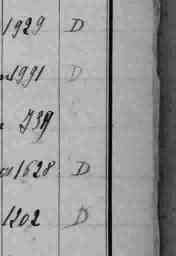 1929 D
1991 D
739
1628 D
1202 D